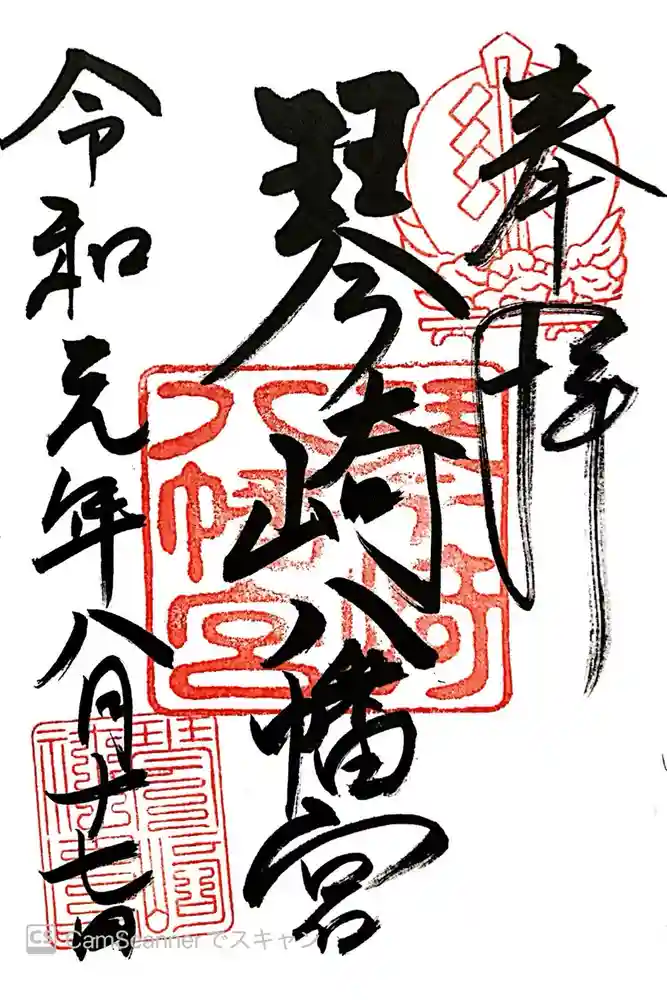 奉拝
琴崎八幡宮
令和元年八月十七日
琴崎八幡宮
CS CamScannerでスキャン